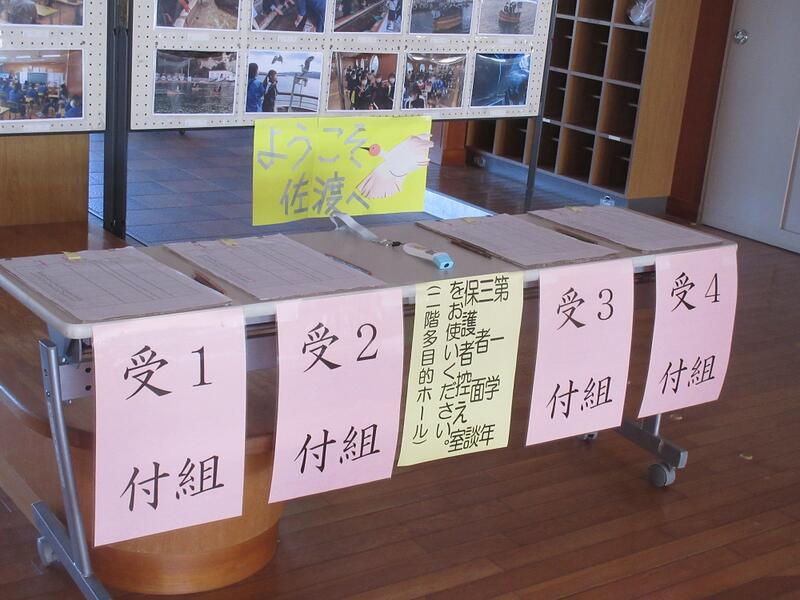 ようこそ
佐渡へ
1組
受付
2組
受付
第一学年
三者面談
保護者控え室
をお使いください。
（二階多目的ホール）
3組
受付
4組
受付